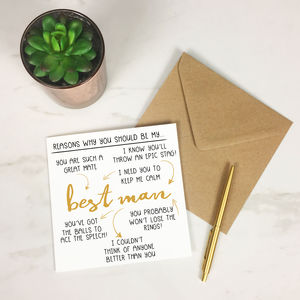 REASONS WHY YOU SHOULD BE MY...
I KNOW YOU'LL
THROW AN EPIC STAG!
YOU ARE SUCH A
GREAT MATE
I NEED YOU TO
KEEP ME CALM
best man
YOU'VE GOT
THE BALLS TO
ACE THE SPEECH!
YOU PROBABLY
WON'T LOSE THE
RINGS!
I COULDN'T
THINK OF ANYONE
BETTER THAN YOU